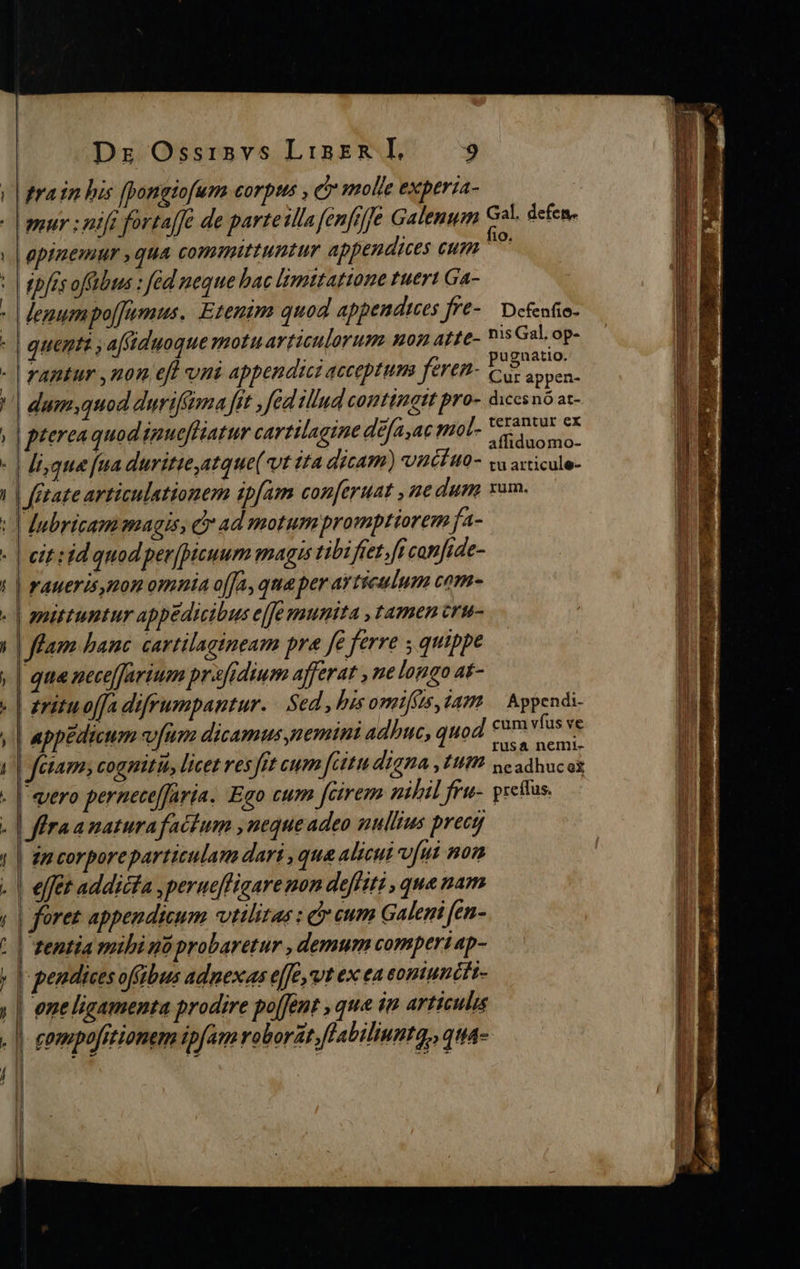 De Ossibvs Liber I. 9
tra in his spongiosum corpus, & molle experia-
mur: nisi fortasse de parte illa sensisse Galenum
opinemur, qua committuntur appendices cum
ipsis ossibus: sed neque hac limitatione tueri Ga-
lenum possumus. Etenim quod appendices fre-
quenti, assiduoque motu articulorum non atte-
rantur, non est vni appendici acceptum feren-
dum, quod durissima sit, sed illud contingit pro-
pterea quod inuestiatur cartilagine desa, ac mol-
li, quæ sua duritie, atque (vt ita dicam) vnctuo-
sitate articulationem ipsam conseruat, ne dum
lubricam magis, & ad motum promptiorem fa-
cit: id quod perspicuum magis tibi fiet, si conside-
raueris, non omnia ossa, quæ per articulum com-
mittuntur appēdicibus esse munita, tamen cru-
stam hanc cartilagineam præ se ferre; quippe
quæ necessarium præsidium afferat, ne longo at-
tritu ossa disrumpantur. Sed, his omissis, iam
appēdicum vsum dicamus, nemini adhuc, quod
sciam, cognitū, licet res sit cum scitu digna, tum
vero pernecessaria. Ego cum scirem nihil fru-
stra a natura factum, neque adeo nullius precij
in corpore particulam dari, quæ alicui vsui non
esset addicta, peruestigare non destiti, quæ nam
foret appendicum vtilitas: & cum Galeni sen-
tentia mihi nō probaretur, demum comperi ap-
pendices ossibus adnexas esse, vt ex ea coniuncti-
one ligamenta prodire possent, quæ in articulis
compositionem ipsam roborāt, stabiliuntq, qua-
Gal. defen-
sio.
Defensio-
nis Gal. op-
pugnatio.
Cur appen-
dices nō at-
terantur ex
assiduo mo-
tu articulo-
rum.
Appendi-
cum vsus ve
rus a nemi-
ne adhuc ex
pressus.